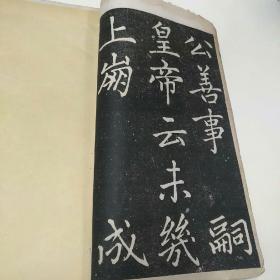 公善事嗣
皇帝云未幾
上崩成